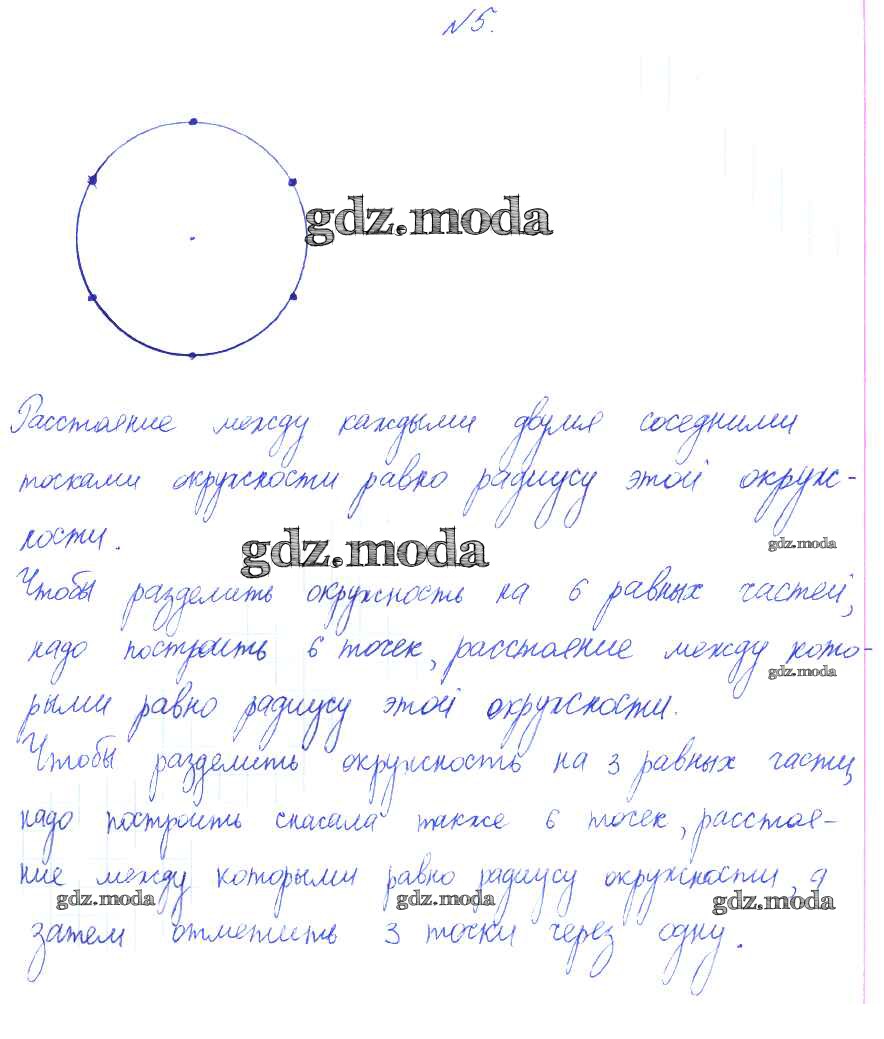 №5.
gdz.moda
Расстояние между каждыми двумя соседними
тосками окружности равно радиусу этой окруж-
ности.
gdz.moda
gdz.moda
Чтобы разделить окружность на 6 равных частей,
надо построить 6 точек, расстояние между кото-
gdz.moda
рыми равно радиусу этой окружности.
Чтобы разделить окружность на 3 равных части,
надо построить сначала также 6 точек, расстоя-
ние между которыми равно радиусу окружности, а
gdz.moda
gdz.moda
gdz.moda
затем отметить 3 точки через одну.